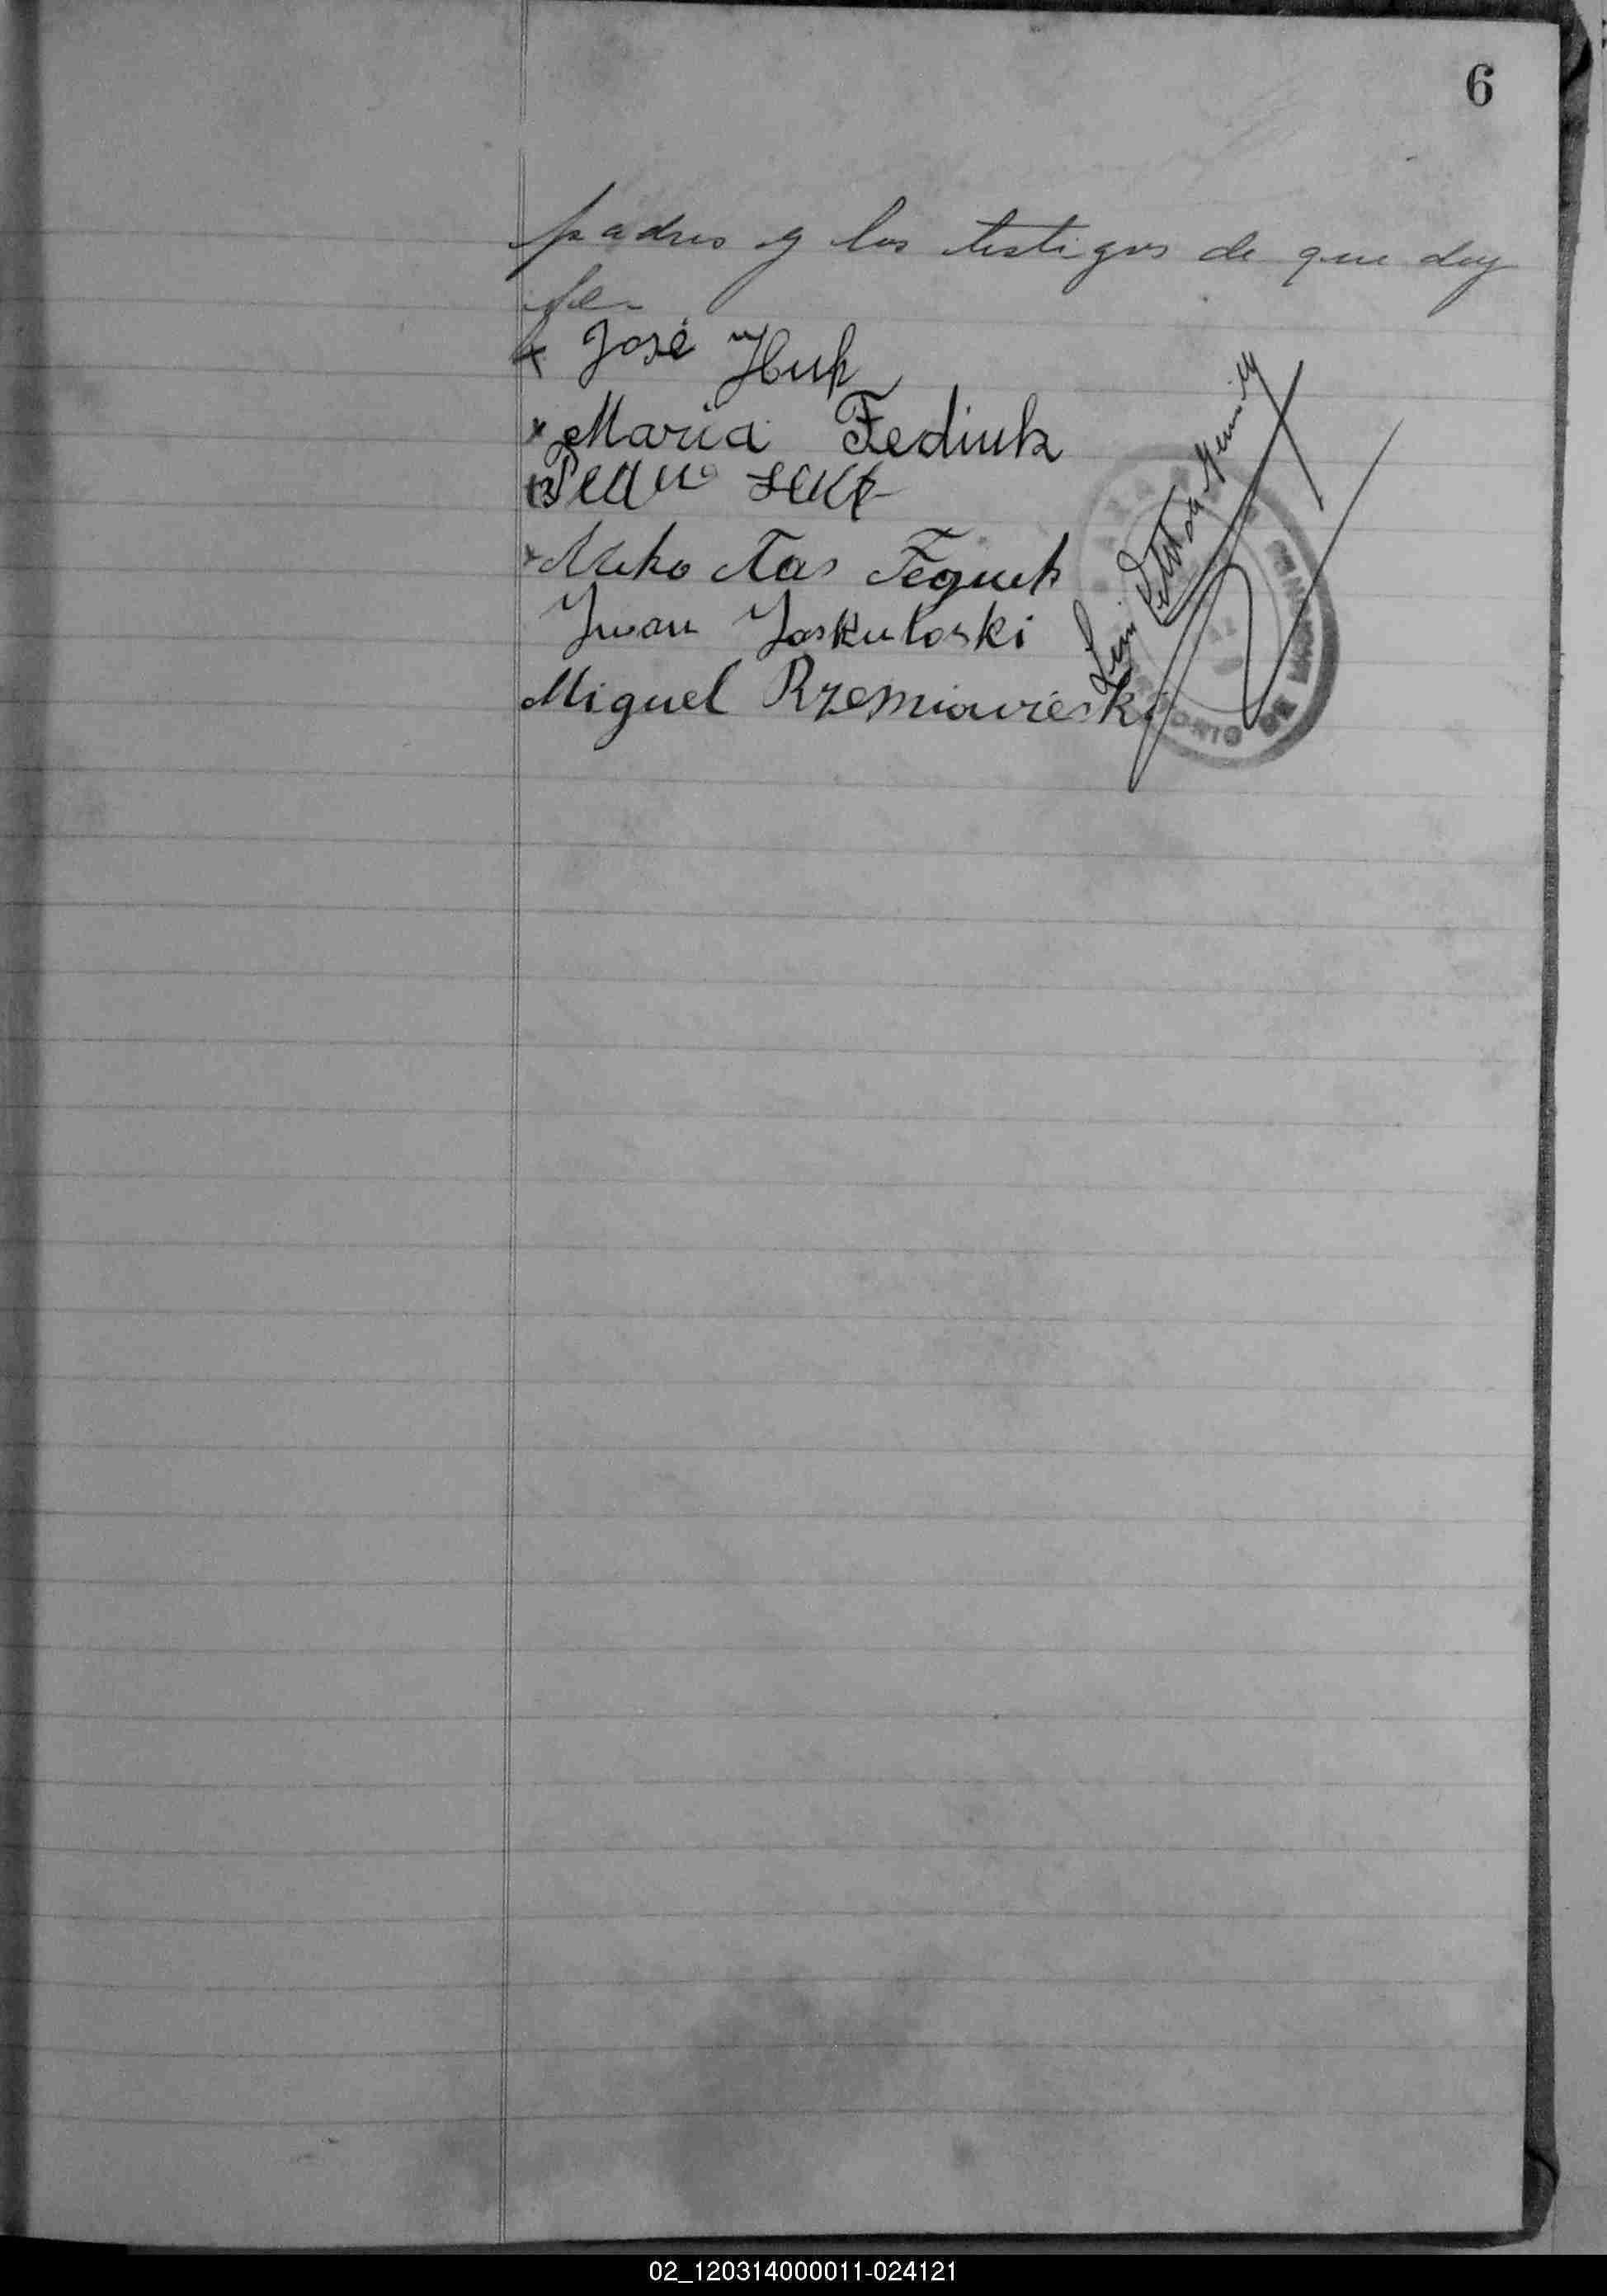 6
padres y los testigos de que doy
fe.
x José Huk
x Maria Fediuk
Pedro
x Fegiuk
Juan Jaskuloski
Miguel Rzemiowieski
02_120314000011-024121